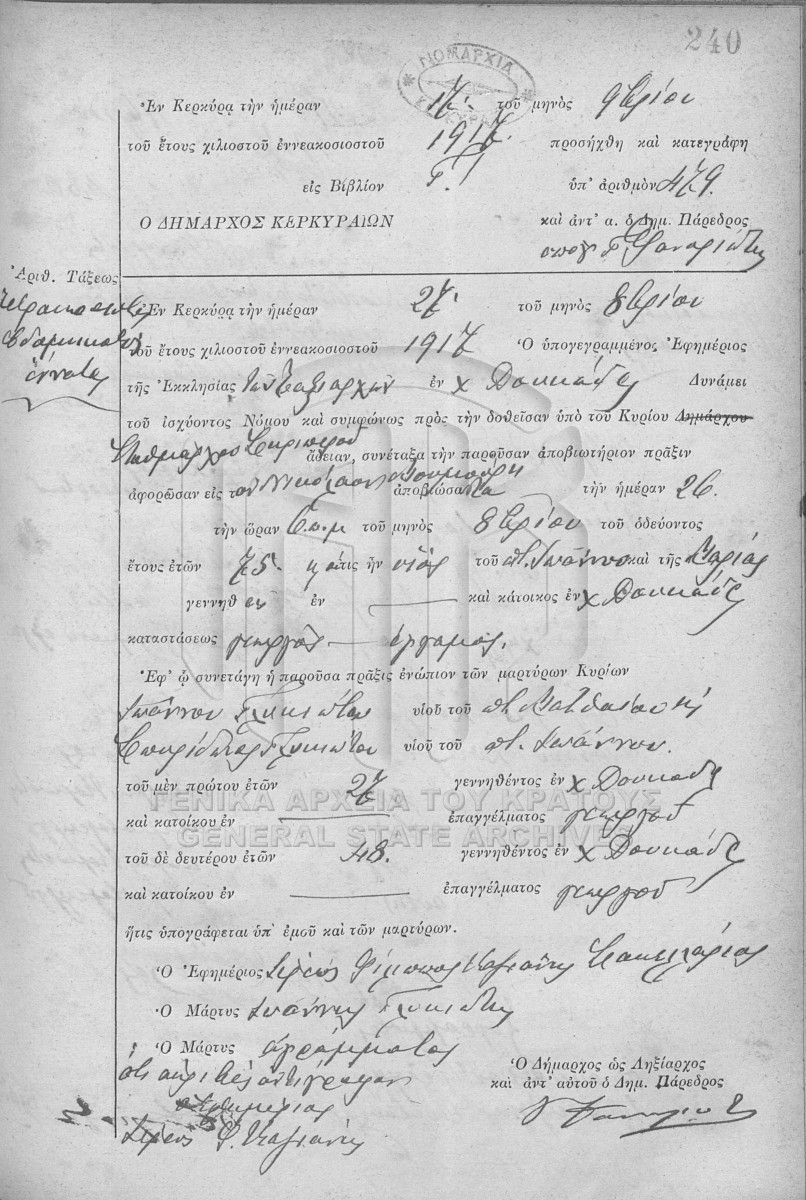 240
ΝΟΜΑΡΧΙΑ
Ἐν Κερκύρᾳ τὴν ἡμέραν 17. τοῦ μηνὸς 9βρίου
τοῦ ἔτους χιλιοστοῦ ἐννεακοσιοστοῦ 1917. προσήχθη καὶ κατεγράφη
εἰς Βιβλίον Γ. ὑπ' ἀριθμὸν 479.
Ο ΔΗΜΑΡΧΟΣ ΚΕΡΚΥΡΑΙΩΝ καὶ ἀντ' α. ὁ Δημ. Πάρεδρος
Ἀριθ. Τάξεως
ἐννάτη
Ἐν Κερκύρᾳ τὴν ἡμέραν 27. τοῦ μηνὸς 8βρίου
τοῦ ἔτους χιλιοστοῦ ἐννεακοσιοστοῦ 1917 Ὁ ὑπογεγραμμένος Ἐφημέριος
τῆς Ἐκκλησίας τῶν Ταξιαρχῶν ἐν χ Δουκάδες Δυνάμει
τοῦ ἰσχύοντος Νόμου καὶ συμφώνως πρὸς τὴν δοθεῖσαν ὑπὸ τοῦ Κυρίου Δημάρχου
ἄδειαν, συνέταξα τὴν παροῦσαν ἀποβιωτήριον πρᾶξιν
ἀφορῶσαν εἰς τὸν Νικόλαον ἀποβιώσαντα τὴν ἡμέραν 26.
τὴν ὥραν 6 π.μ τοῦ μηνὸς 8βρίου τοῦ ὁδεύοντος
ἔτους ἐτῶν 75. ἥτις ἦν υἱὸς τοῦ ποτ. Ἰωάννου καὶ τῆς Μαρίας
γεννηθ εὶς ἐν καὶ κάτοικος ἐν χ Δουκάδες
καταστάσεως γεωργὸς — ἔγγαμος.
Ἐφ' ᾧ συνετάγη ἡ παροῦσα πρᾶξις ἐνώπιον τῶν μαρτύρων Κυρίων
Ἰωάννου Γλυκιώτου υἱοῦ τοῦ ποτ. Ματθαίου καὶ
Σπυρίδωνος Γλυκιώτου υἱοῦ τοῦ ποτ. Ἰωάννου.
τοῦ μὲν πρώτου ἐτῶν 27 γεννηθέντος ἐν χ Δουκάδες
καὶ κατοίκου ἐν ἐπαγγέλματος γεωργοῦ
τοῦ δὲ δευτέρου ἐτῶν 48. γεννηθέντος ἐν χ Δουκάδες
καὶ κατοίκου ἐν ἐπαγγέλματος γεωργοῦ
ἥτις ὑπογράφεται ὑπ' ἐμοῦ καὶ τῶν μαρτύρων.
Ὁ Ἐφημέριος Ἱερεὺς Φίλιππος Σακελλάριος
Ὁ Μάρτυς Ἰωάννης Γλυκιώτης
Ὁ Μάρτυς ἀγράμματος
Ὅτι ἀκριβὲς ἀντίγραφον
Ὁ Ἐφημέριος
Ἱερεὺς Φ.
Ὁ Δήμαρχος ὡς Ληξίαρχος
καὶ ἀντ' αὐτοῦ ὁ Δημ. Πάρεδρος
ΓΕΝΙΚΑ ΑΡΧΕΙΑ ΤΟΥ ΚΡΑΤΟΥΣ
GENERAL STATE ARCHIVES